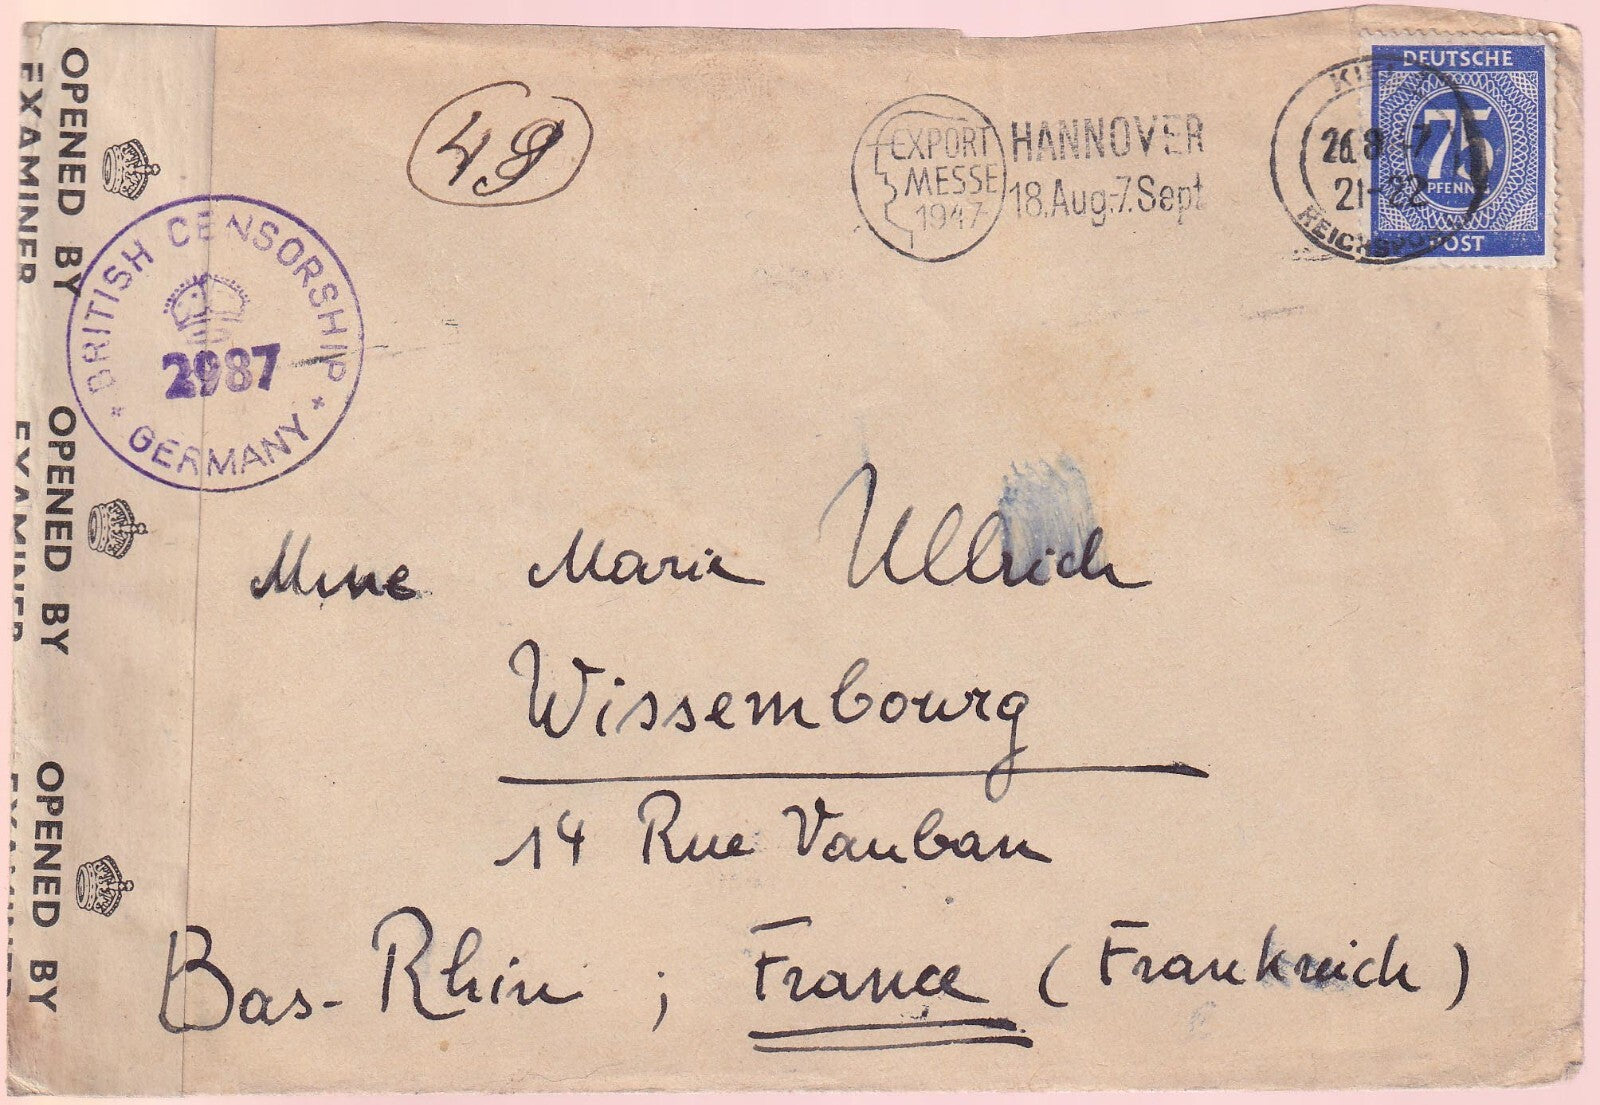 OPENED BY
EXAMINER
OPENED BY
EXAMINER
OPENED BY
EXAMINER
BRITISH CENSORSHIP
2987
* GERMANY *
49
EXPORT
MESSE
1947
HANNOVER
18.Aug.-7.Sept
KIEL
21-22
REICHSPO
DEUTSCHE
75
PFENNIG
POST
Mme Marie Ullrich
Wissembourg
14 Rue Vauban
Bas-Rhin ; France (Frankreich)